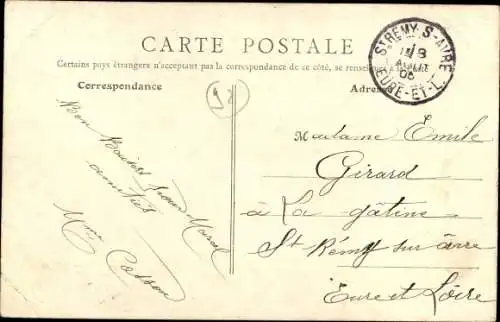 CARTE POSTALE
Certains pays étrangers n'acceptant pas la correspondance de ce côté, se renseigner à
Correspondance
Adresse
ST REMY-S-AVRE
18
AOUT
06
EURE-ET-L.
Madame Emile
Girard
à La gâtine
St Rémy sur avre
Eure et Loire
Bon Baisers
Marcel
amitiés
Mme Casson